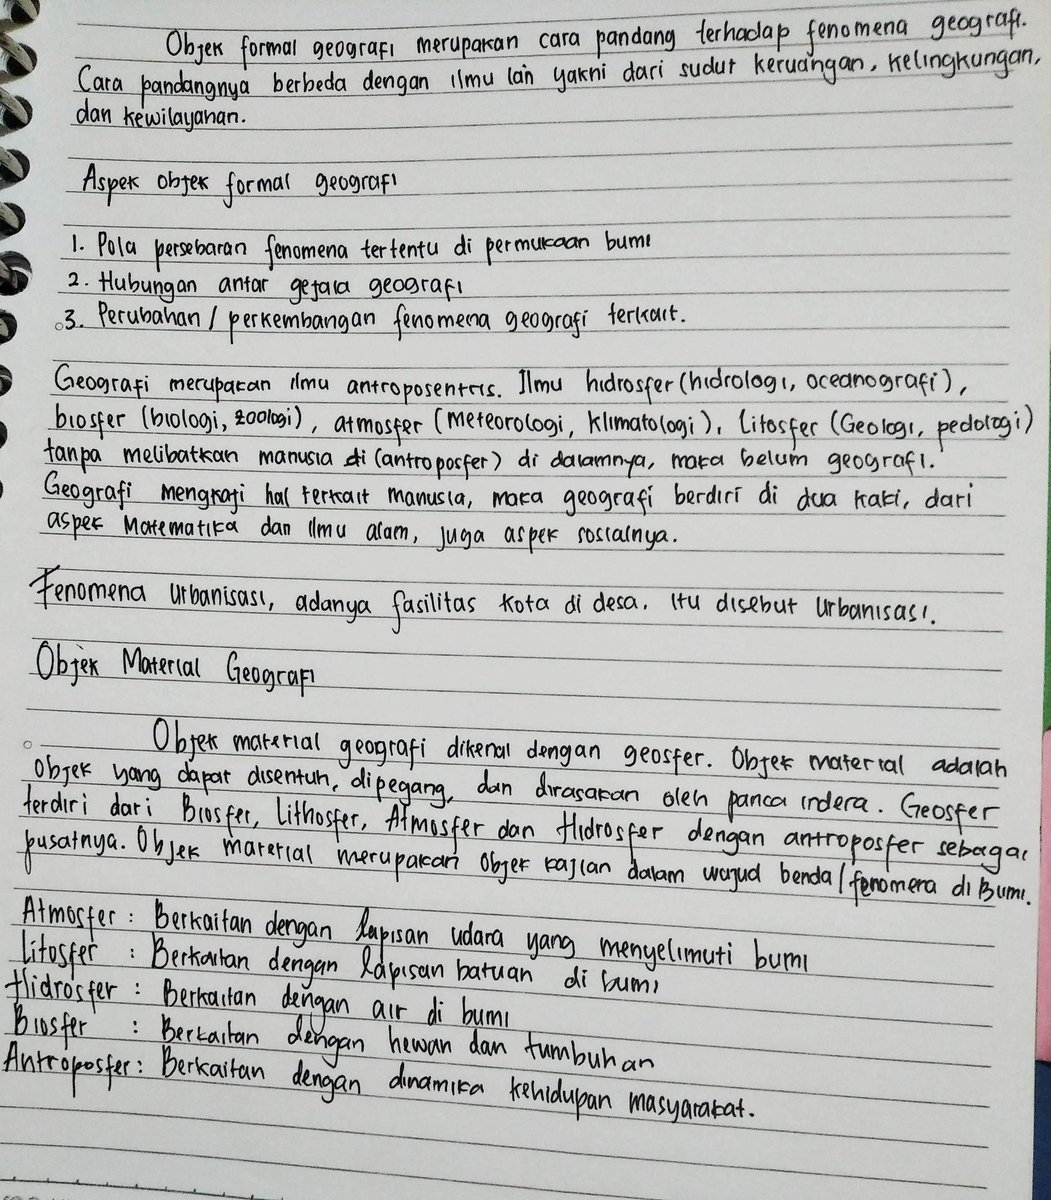 Objek formal geografi merupakan cara pandang terhadap fenomena geografi.
Cara pandangnya berbeda dengan ilmu lain yakni dari sudut keruangan, kelingkungan,
dan kewilayahan.
Aspek objek formal geografi
1. Pola persebaran fenomena tertentu di permukaan bumi
2. Hubungan antar gejala geografi
3. Perubahan / perkembangan fenomena geografi terkait.
Geografi merupakan ilmu antroposentris. Ilmu hidrosfer (hidrologi, oceanografi),
biosfer (biologi, zoologi), atmosfer (meteorologi, klimatologi), litosfer (Geologi, pedologi)
tanpa melibatkan manusia di (antroposfer) di dalamnya, maka belum geografi.
Geografi mengkaji hal terkait manusia, maka geografi berdiri di dua kaki, dari
aspek Matematika dan ilmu alam, juga aspek sosialnya.
Fenomena Urbanisasi, adanya fasilitas kota di desa. Itu disebut Urbanisasi.
Objek Material Geografi
Objek material geografi dikenal dengan geosfer. Objek material adalah
objek yang dapat disentuh, dipegang, dan dirasakan oleh panca indera. Geosfer
terdiri dari Biosfer, Lithosfer, Atmosfer dan Hidrosfer dengan antroposfer sebagai
pusatnya. Objek material merupakan objek kajian dalam wujud benda/fenomera di Bumi.
Atmosfer : Berkaitan dengan lapisan udara yang menyelimuti bumi
Litosfer : Berkaitan dengan lapisan batuan di bumi
Hidrosfer : Berkaitan dengan air di bumi
Biosfer : Berkaitan dengan hewan dan tumbuhan
Antroposfer : Berkaitan dengan dinamika kehidupan masyarakat.